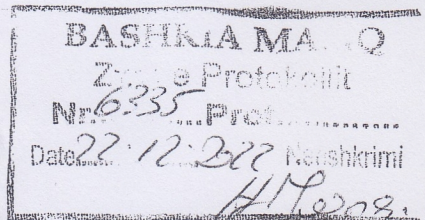 BASHKIA MALIQ
Zyra e Protokollit
Nr. 6335 Prot.
Date 22.12.2022 Nenshkrimi